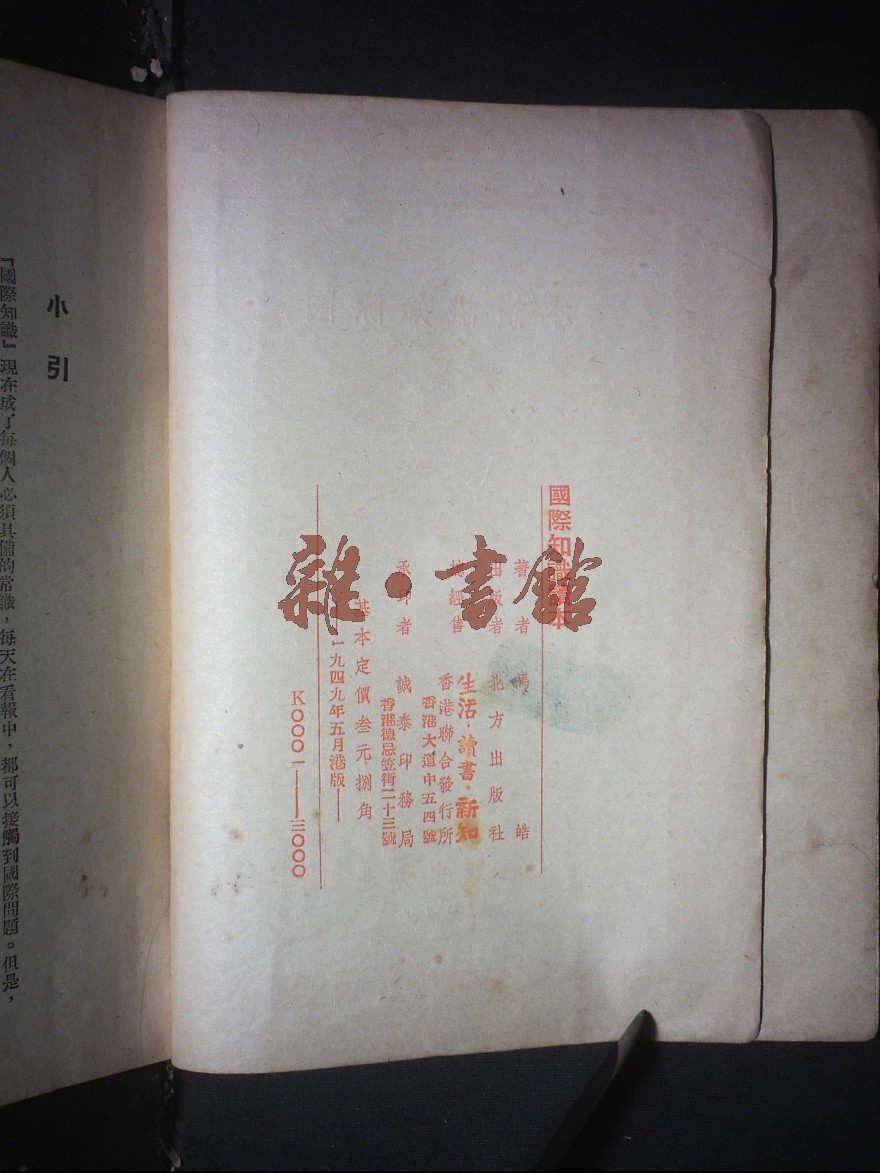 國際知識讀本
著者 皓
出版者 北方出版社
經售 生活·讀書·新知
香港聯合發行所
香港大道中五四號
承印者 誠泰印務局
香港德忌笠街二十三號
基本定價叁元捌角
一九四九年五月港版——
K〇〇〇一——三〇〇〇
小引
『國際知識』現在成了每個人必須具備的常識，每天在看報中，都可以接觸到國際問題。但是，
雜·書館